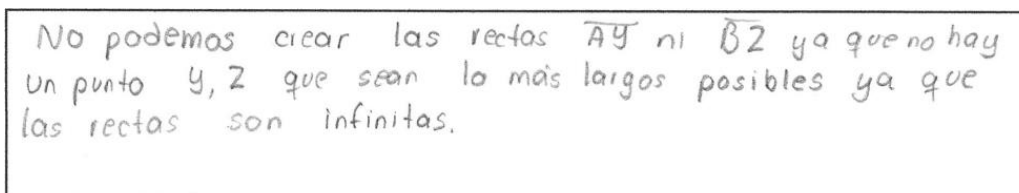 No podemos crear las rectas A̅Y̅ ni B̅Z̅ ya que no hay
un punto Y, Z que sean lo más largos posibles ya que
las rectas son infinitas.